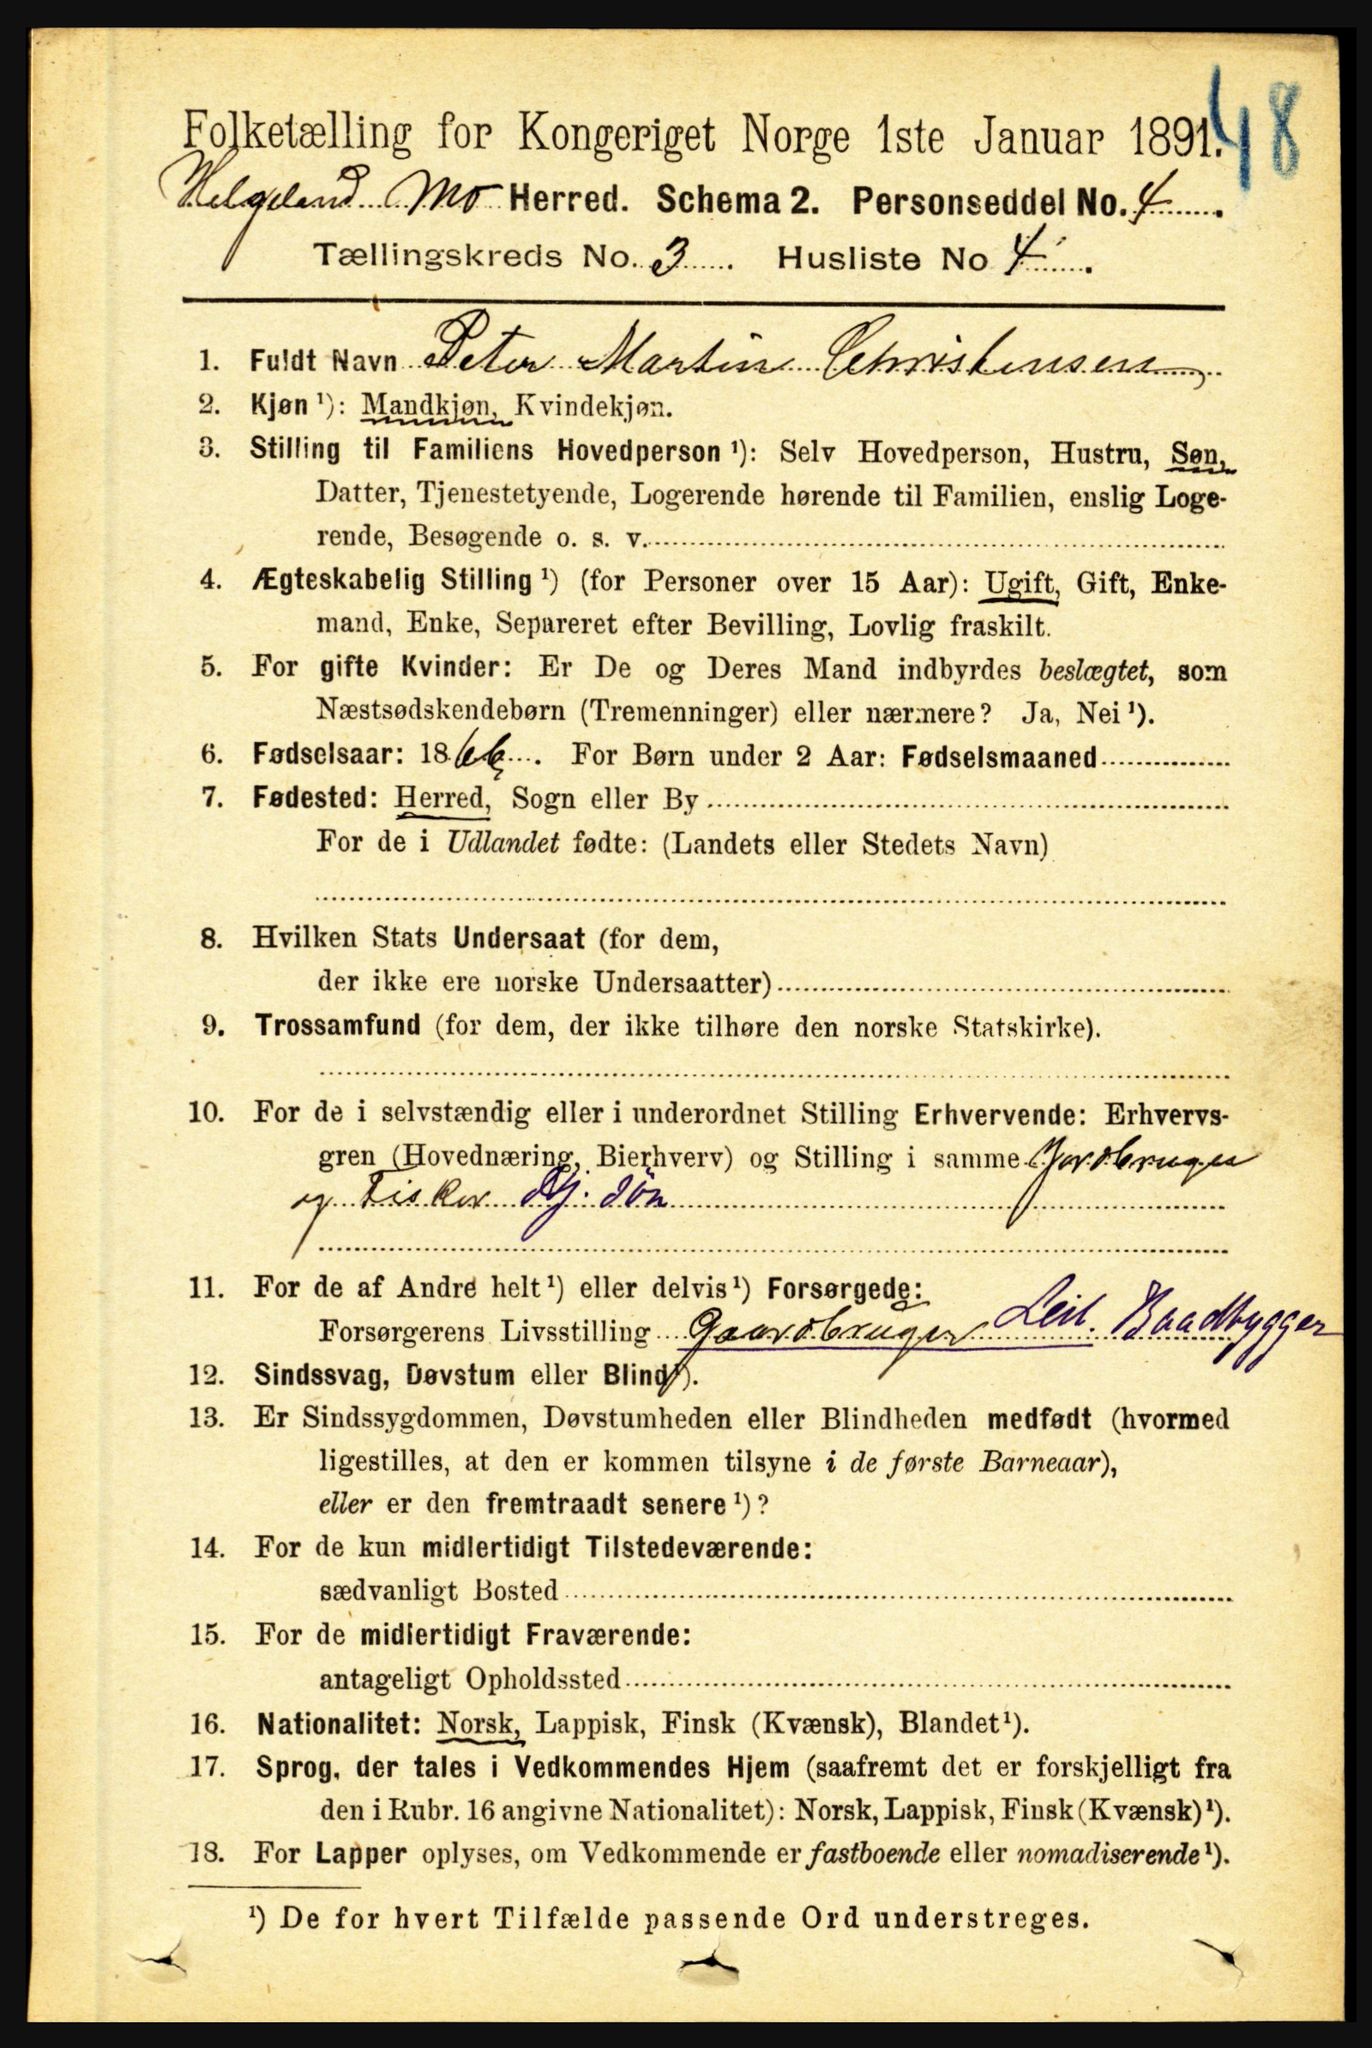 48
Folketælling for Kongeriget Norge 1ste Januar 1891.
Helgeland Mo Herred. Schema 2. Personseddel No. 4.
Tællingskreds No. 3. Husliste No 4.
1. Fuldt Navn Peter Martin Christensen
2. Kjøn ¹): Mandkjøn, Kvindekjøn.
3. Stilling til Familiens Hovedperson ¹): Selv Hovedperson, Hustru, Søn,
Datter, Tjenestetyende, Logerende hørende til Familien, enslig Loge-
rende, Besøgende o. s. v.
4. Ægteskabelig Stilling ¹) (for Personer over 15 Aar): Ugift, Gift, Enke-
mand, Enke, Separeret efter Bevilling, Lovlig fraskilt.
5. For gifte Kvinder: Er De og Deres Mand indbyrdes beslægtet, som
Næstsødskendebørn (Tremenninger) eller nærmere? Ja, Nei ¹).
6. Fødselsaar: 1866. For Børn under 2 Aar: Fødselsmaaned
7. Fødested: Herred, Sogn eller By
For de i Udlandet fødte: (Landets eller Stedets Navn)
8. Hvilken Stats Undersaat (for dem,
der ikke ere norske Undersaatter)
9. Trossamfund (for dem, der ikke tilhøre den norske Statskirke).
10. For de i selvstændig eller i underordnet Stilling Erhvervende: Erhvervs-
gren (Hovednæring, Bierhverv) og Stilling i samme Jordbruger
og Fisker Gj. Søn
11. For de af Andre helt ¹) eller delvis ¹) Forsørgede:
Forsørgerens Livsstilling Gaardbruger Leil. Baadbygger
12. Sindssvag, Døvstum eller Blind ¹).
13. Er Sindssygdommen, Døvstumheden eller Blindheden medfødt (hvormed
ligestilles, at den er kommen tilsyne i de første Barneaar),
eller er den fremtraadt senere ¹)?
14. For de kun midlertidigt Tilstedeværende:
sædvanligt Bosted
15. For de midlertidigt Fraværende:
antageligt Opholdssted
16. Nationalitet: Norsk, Lappisk, Finsk (Kvænsk), Blandet ¹).
17. Sprog, der tales i Vedkommendes Hjem (saafremt det er forskjelligt fra
den i Rubr. 16 angivne Nationalitet): Norsk, Lappisk, Finsk (Kvænsk) ¹).
18. For Lapper oplyses, om Vedkommende er fastboende eller nomadiserende ¹).
¹) De for hvert Tilfælde passende Ord understreges.